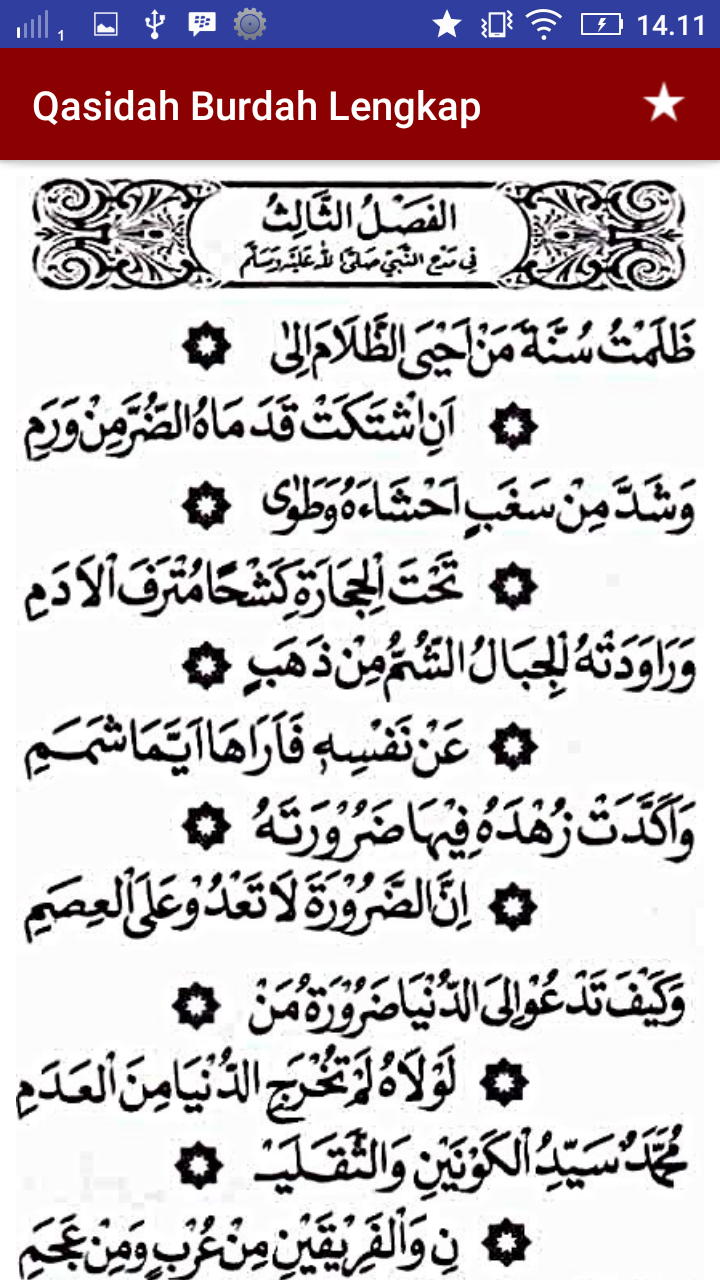 1 14.11
Qasidah Burdah Lengkap
الفَصْلُ الثَّالِثُ
فِي مَدْحِ النَّبِيِّ صَلَّى اللهُ عَلَيْهِ وَسَلَّمَ
ظَلَمْتُ سُنَّةَ مَنْ اَحْيَى الظَّلَامَ اِلىٰ
اَنِ اشْتَكَتْ قَدَمَاهُ الضُّرَّ مِنْ وَرَمِ
وَشَدَّ مِنْ سَغَبٍ اَحْشَاءَهُ وَطَوٰى
تَحْتَ الْحِجَارَةِ كَشْحًا مُتْرَفَ الْاَدَمِ
وَرَاوَدَتْهُ الْجِبَالُ الشُّمُّ مِنْ ذَهَبٍ
عَنْ نَفْسِهٖ فَاَرَاهَا اَيَّمَا شَمَمِ
وَاَكَّدَتْ زُهْدَهُ فِيْهَا ضَرُوْرَتُهُ
اِنَّ الضَّرُوْرَةَ لَا تَعْدُوْ عَلَى الْعِصَمِ
وَكَيْفَ تَدْعُوْ اِلَى الدُّنْيَا ضَرُوْرَةُ مَنْ
لَوْلَاهُ لَمْ تَخْرُجِ الدُّنْيَا مِنَ الْعَدَمِ
مُحَمَّدٌ سَيِّدُ الْكَوْنَيْنِ وَالثَّقَلَيْـ
نِ وَالْفَرِيْقَيْنِ مِنْ عُرْبٍ وَمِنْ عَجَمِ